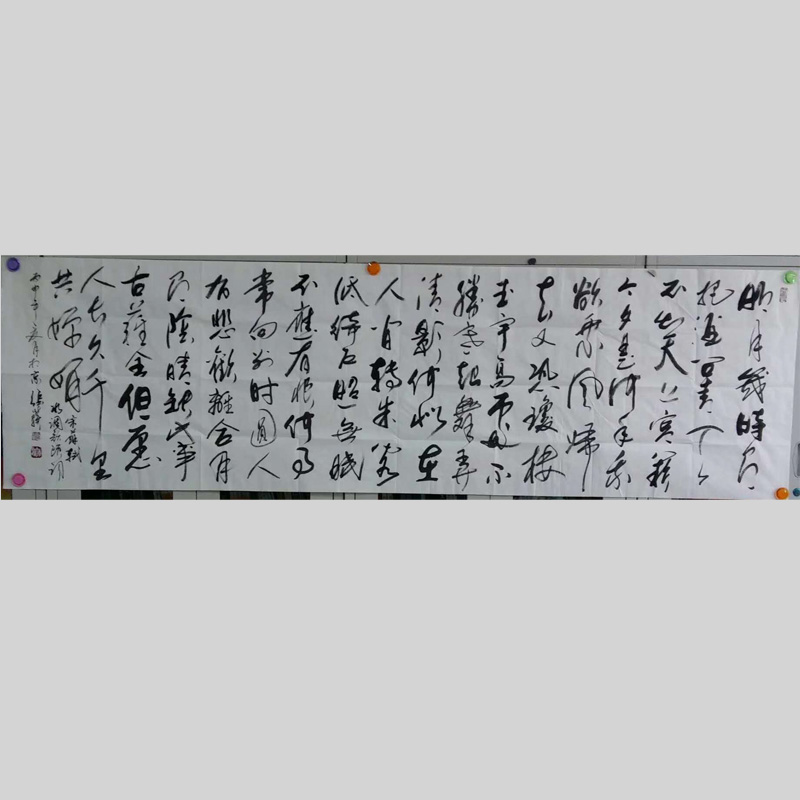 明月幾時有
把酒問青天
不知天上宮闕
今夕是何年我
欲乘風歸
去又恐瓊樓
玉宇高處不
勝寒起舞弄
清影何似在
人間轉朱閣
低綺户照無眠
不應有恨何事
常向别時圓人
有悲歡離合月
有陰晴缺此事
古難全但愿
人長久千里
共嬋娟
宋蘇軾
水調歌頭詞
丙申年月於京